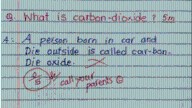 Q. What is carbon-dioxide? 5m
A: A person born in car and
Die outside is called car-bon.
Die oxide.
0/5 call your
parents